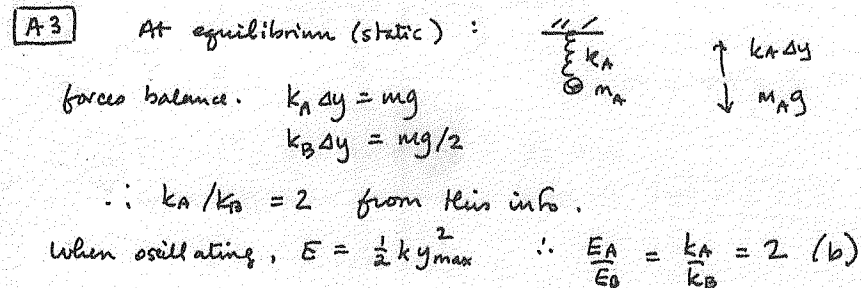 A3 At equilibrium (static) :
k_A
m_A
k_A Δy
m_A g
forces balance. k_A Δy = mg
k_B Δy = mg/2
∴ k_A / k_B = 2 from this info.
When oscillating, E = ½ k y²_max ∴ E_A/E_B = k_A/k_B = 2 (b)